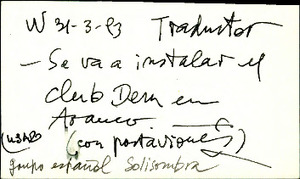 W 31-3-93 Traductor
- Se va a instalar el
club Dem en
Arauco
(con portaviones)
(USAD)
grupo español Solisombra